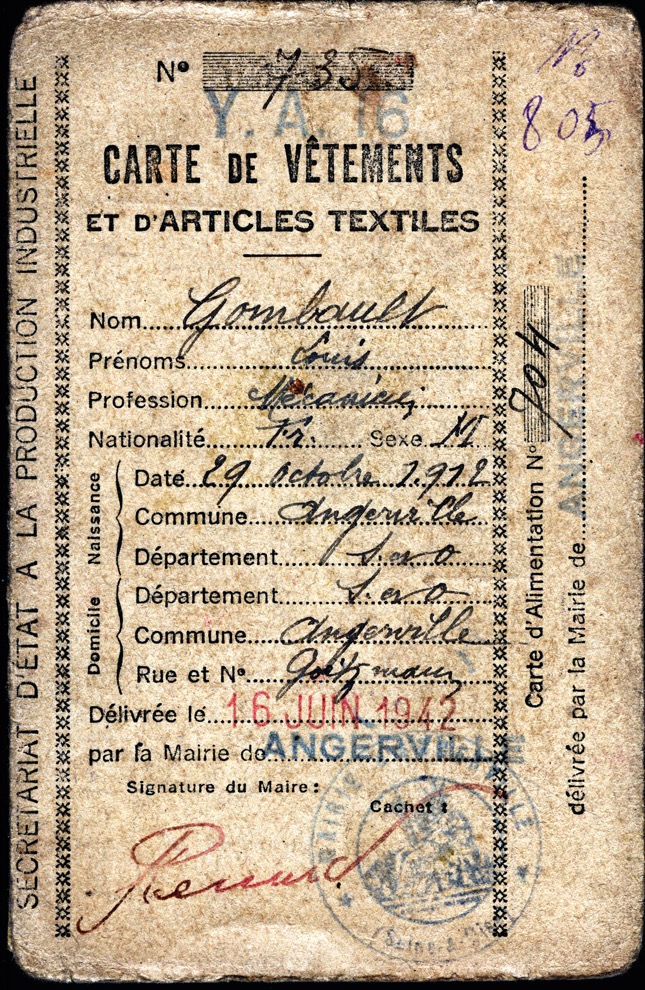 SECRÉTARIAT D'ÉTAT A LA PRODUCTION INDUSTRIELLE
Nº 735
Y. A. 16
805
CARTE DE VÊTEMENTS
ET D'ARTICLES TEXTILES
Nom Gombault
Prénoms Louis
Profession Mécanicien
Nationalité Fr. Sexe M
Naissance
Date 29 Octobre 1.912
Commune Angerville
Département S. et O
Domicile
Département S. et O
Commune Angerville
Rue et Nº
Délivrée le 16 JUIN 1942
par la Mairie de ANGERVILLE
Signature du Maire :
Cachet :
MAIRIE ANGERVILLE
(Seine-&-Oise)
Carte d'Alimentation Nº 704
délivrée par la Mairie de ANGERVILLE